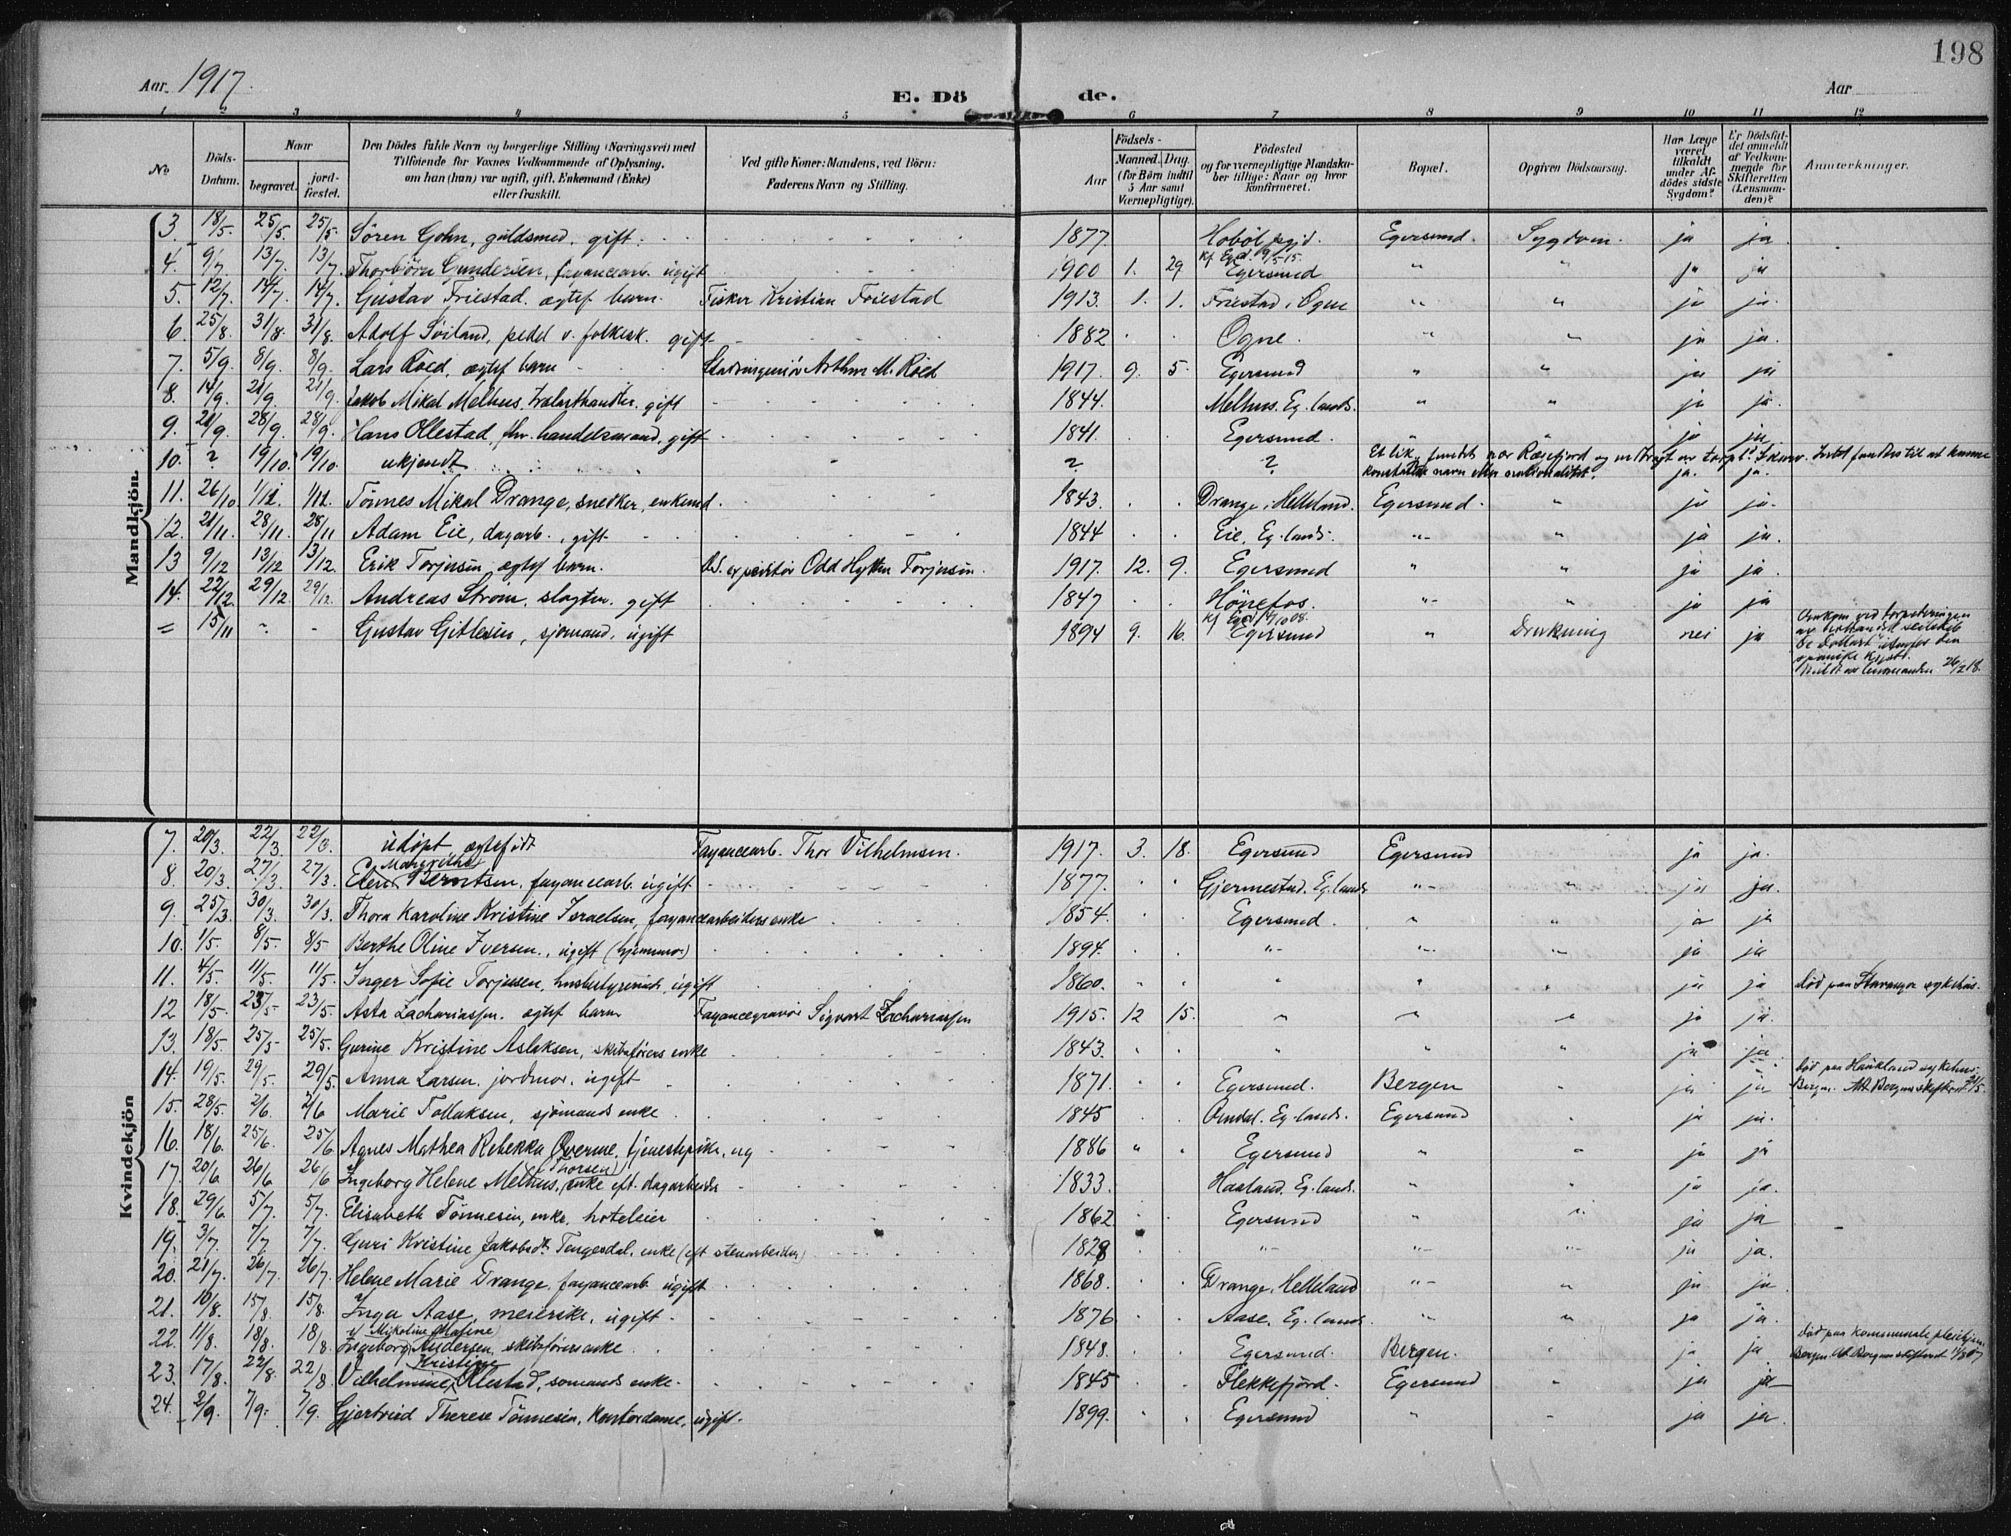 198
Aar 1917.
E. Dö de.
Aar
1 2 3 4 5 6 7 8 9 10 11 12
No
Döds-Datum.
Naar
begravet.
jord-fæstet.
Den Dödes fulde Navn og borgerlige Stilling (Næringsvei) med
Tilföiende for Voxnes Vedkommende af Oplysning,
om han (hun) var ugift, gift, Enkemand (Enke)
eller fraskilt.
Ved gifte Koner: Mandens, ved Börn:
Faderens Navn og Stilling.
Födsels-
Aar
Maaned. Dag.
(for Börn indtil
5 Aar samt
Værnepligtige).
Födested
og for værnepligtige Mandsku-
ber tillige: Naar og hvor
konfirmeret.
Bopæl.
Opgiven Dödsaarsag.
Har Læge
været
tilkaldt
under Af-
dödes sidste
Sygdom?
Er Dödsfal-
det anmeldt
af Vedkom-
mende for
Skifteretten
(Lensman-
den)?
Anmærkninger.
Mandkjön.
3. 18/5. 25/5. 25/5. Søren Gohn, guldsmed, gift. 1877. Hobøl Egersund. Sygdom. ja ja
4. 9/7. 13/7. 13/7. Thorbörn Gundersen, fayancearb. ugift 1900 1. 29 Egersund " " ja ja
5. 12/7. 14/7. 14/7. Gustav Friestad. ægtef barn. Fisker Kristian Friestad 1913. 1. 1. Friestad i Ogne " " ja ja.
6. 25/8. 31/8. 31/8. Adolf Soiland, pedel v. folkesk. gift 1882 Ogne. " " ja ja.
7. 5/9. 8/9. 8/9. Lars Röed, ægtef barn Arthur M. Röed 1917. 9. 5. Egersund " " ja ja
8. 14/9. 21/9. 21/9. Jakob Mikal Melhus, gift 1844. Melhus. Eg. lands. " " ja ja.
9. 21/9. 28/9. 28/9. Hans Ollestad, fhv. handelsmand, gift 1841. Egersund. " " ja ja
10. ? 19/10. 19/10. ukjendt ? ? Et lik, fundet nær Rægefjord ja. ja.
11. 26/10 1/12. 1/12. Tönnes Mikal Drange, snekker, enkemd. 1843. Drange i Helleland. Egersund. " ja ja.
12. 21/11. 28/11. 28/11 Adam Eie, dagarb., gift 1844 Eie, Eg. lands. " " ja ja.
13 9/12 13/12 13/12. Erik Torjusen ægtef barn. Odd Torjusen. 1917. 12. 9. Egersund " " ja ja.
14. 22/12. 29/12 29/12. Andreas Strøm, slagter. gift 1847 Hönefos. " " ja ja
= 15/11 - - Gustav Gitlesen, sjømand, ugift 1894 9. 16. Egersund " Drukning nei ja
26/2 18.
Kvindekjön
7. 20/3. 22/3. 22/3. udöpt ægtefödt Fayancearb. Thor Vilhelmsen. 1917. 3. 18. Egersund Egersund ja ja.
8. 20/3. 27/3. 27/3. Elen Margrethe Berntsen, fayancearb. ugift 1877. Gjermestad. Eg. lands " " ja ja.
9. 25/3 30/3. 30/3. Thora Karoline Kristine Israelsen, fayancearbeiders enke 1854. Egersund. " " ja ja
10. 1/5. 8/5. 8/5 Berthe Oline Iversen, ugift (hjemmev.) 1894. " " " ja ja
11. 4/5. 11/5. 11/5. Inger Sofie Torjusen, husbestyrerinde, ugift 1860. " " " ja ja Död paa Stavanger sykehus.
12 18/5. 23/5. 23/5. Asta Zachariassen. ægtef barn Fayancegravör Sigvart Zachariassen 1915. 12 15. " " " ja ja.
13. 18/5. 25/5. 25/5. Gurine Kristine Aslaksen, skibsførers enke 1843. " " " ja ja
14. 19/5. 29/5. 29/5. Anna Larsen, jordmor. ugift 1871. Egersund. Bergen " ja ja Död paa Haukeland sykehus. Bergen.
15. 28/5. 2/6. 2/6 Marie Tollaksen, sjömands enke 1845 Omdal. Eg. lands. Egersund " ja ja.
16. 18/6. 25/6. 25/6 Agnes Mathea Rebekka Qverme, tjenestepike, ug 1886 Egersund " " ja ja
17. 20/6 26/6 26/6 Ingeborg Helene Melhus, (Thorsen) enke eft. dagarbeider 1833. Haaland. Eg. lands. " " ja ja.
18. 29/6. 5/7. 5/7. Elisabeth Tönnesen, enke, hoteleier 1862 Egersund " " ja ja
19. 3/7. 7/7 7/7. Guri Kristine Jakobsdt. Tengesdal, enke (eft stenarbeider) 1828 " " " ja ja.
20. 21/7. 26/7. 26/7. Helene Marie Drange, fayancearb. ugift 1868. Drange i Helleland " " ja ja
21. 10/8. 15/8. 15/8. Inga Aase, meierske, ugift 1876 Aase, Eg. lands " " ja ja.
22. 11/8. 18/8. 18/8. Ingeborg Mikoline Andersen, skibsførers enke 1848. Egersund. Bergen. " ja ja
23. 17/8. 22/8. 22/8 Vilhelmine Kristine Ollestad, sömands enke. 1845 Flekkefjord. Egersund " ja ja
24. 2/9. 7/9. 7/9. Gjertrud Therese Tönnesen, kontordame, ugift. 1899. Egersund " " ja ja.